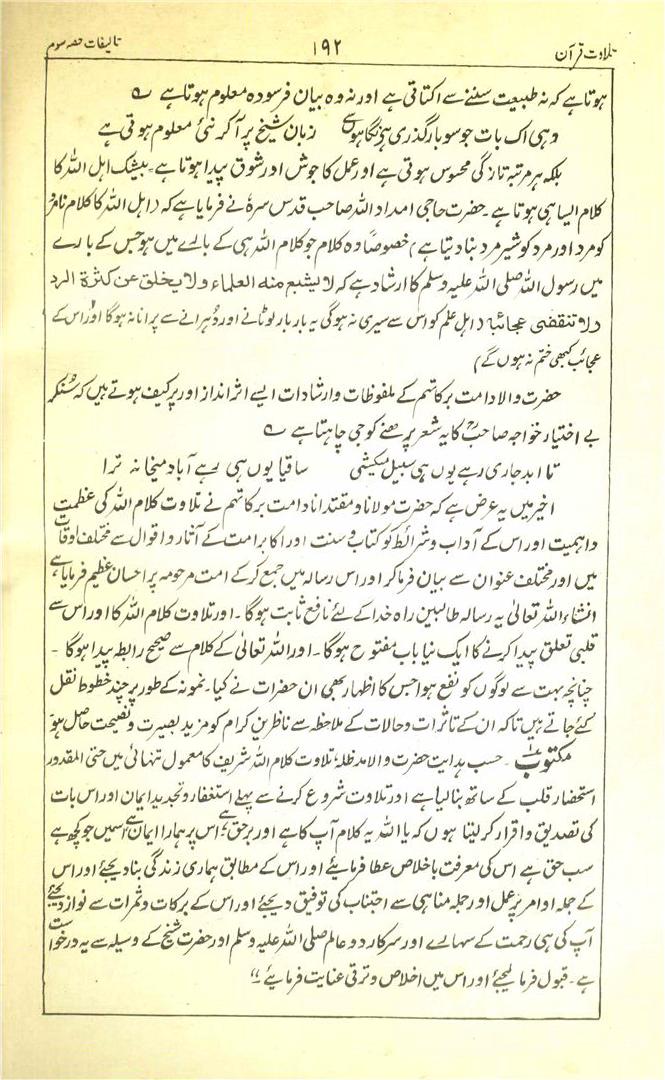 تلاوت قرآن ۱۹۲ تالیفات حصہ سوم
ہوتا ہے کہ نہ طبیعت سننے سے اکتاتی ہے اور نہ وہ بیان فرسودہ معلوم ہوتا ہے ؎
وہی اک بات جو سو بار گذری ہے نگاہوں سے زبان شیخ پر آ کر نئی معلوم ہوتی ہے
بلکہ ہر مرتبہ تازگی محسوس ہوتی ہے اور عمل کا جوش اور شوق پیدا ہوتا ہے۔ بیشک اہل اللہ کا
کلام ایسا ہی ہوتا ہے۔ حضرت حاجی امداد اللہ صاحب قدس سرہٗ نے فرمایا ہے کہ (اہل اللہ کا کلام نامرد
کو مرد اور مرد کو شیر مرد بنا دیتا ہے) خصوصًا وہ کلام جو کلام اللہ ہی کے بارے میں ہو جس کے بارے
میں رسول اللہ صلی اللہ علیہ وسلم کا ارشاد ہے کہ لا یشبع منه العلماء ولا یخلق عن کثرة الرد
ولا تنقضی عجائبه (اہل علم کو اس سے سیری نہ ہوگی یہ بار بار لوٹانے اور دُہرانے سے پرانا نہ ہوگا اور اس کے
عجائب کبھی ختم نہ ہوں گے)
حضرت والا دامت برکاتہم کے ملفوظات وارشادات ایسے اثر انداز اور پرکیف ہوتے ہیں کہ سُنکر
بے اختیار خواجہ صاحبؒ کا یہ شعر پڑھنے کو جی چاہتا ہے ؎
تا ابد جاری رہے یوں ہی سبیل میکشی ساقیا یوں ہی رہے آباد میخانہ ترا
اخیر میں یہ عرض ہے کہ حضرت مولانا و مقتدانا دامت برکاتہم نے تلاوت کلام اللہ کی عظمت
و اہمیت اور اس کے آداب و شرائط کو کتاب و سنت اور اکابر امت کے آثار و اقوال سے مختلف اوقات
میں اور مختلف عنوان سے بیان فرما کر اور اس رسالہ میں جمع کر کے امت مرحومہ پر احسان عظیم فرمایا ہے
انشاء اللہ تعالیٰ یہ رسالہ طالبین راہ خدا کے لئے نافع ثابت ہوگا۔ اور تلاوت کلام اللہ کا اور اس سے
قلبی تعلق پیدا کرنے کا ایک نیا باب مفتوح ہوگا۔ اور اللہ تعالیٰ کے کلام سے صحیح رابطہ پیدا ہوگا۔
چنانچہ بہت سے لوگوں کو نفع ہوا جس کا اظہار بھی ان حضرات نے کیا۔ نمونہ کے طور پر چند خطوط نقل
کئے جاتے ہیں تاکہ ان کے تاثرات و حالات کے ملاحظہ سے ناظرین کرام کو مزید بصیرت و نصیحت حاصل ہو۔
مکتوب۱۔ حسب ہدایت حضرت والا مدظلہٗ تلاوت کلام اللہ شریف کا معمول تنہائی میں حتی المقدور
استحضار قلب کے ساتھ بنا لیا ہے اور تلاوت شروع کرنے سے پہلے استغفار و تجدید ایمان اور اس بات
کی تصدیق و اقرار کر لیتا ہوں کہ یا اللہ یہ کلام آپ کا ہے اور برحق ہے اس پر ہمارا ایمان ہے اسمیں جو کچھ ہے
سب حق ہے اس کی معرفت باخلاص عطا فرمایئے اور اس کے مطابق ہماری زندگی بنا دیجئے اور اس
کے جملہ اوامر پر عمل اور جملہ مناہی سے اجتناب کی توفیق دیجئے اور اس کے برکات و ثمرات سے نواز دیجئے
آپ کی ہی رحمت کے سہارے اور سرکار دو عالم صلی اللہ علیہ وسلم اور حضرت شیخ کے وسیلہ سے یہ درخواست
ہے۔ قبول فرما لیجئے اور اس میں اخلاص و ترقی عنایت فرمایئے۔"